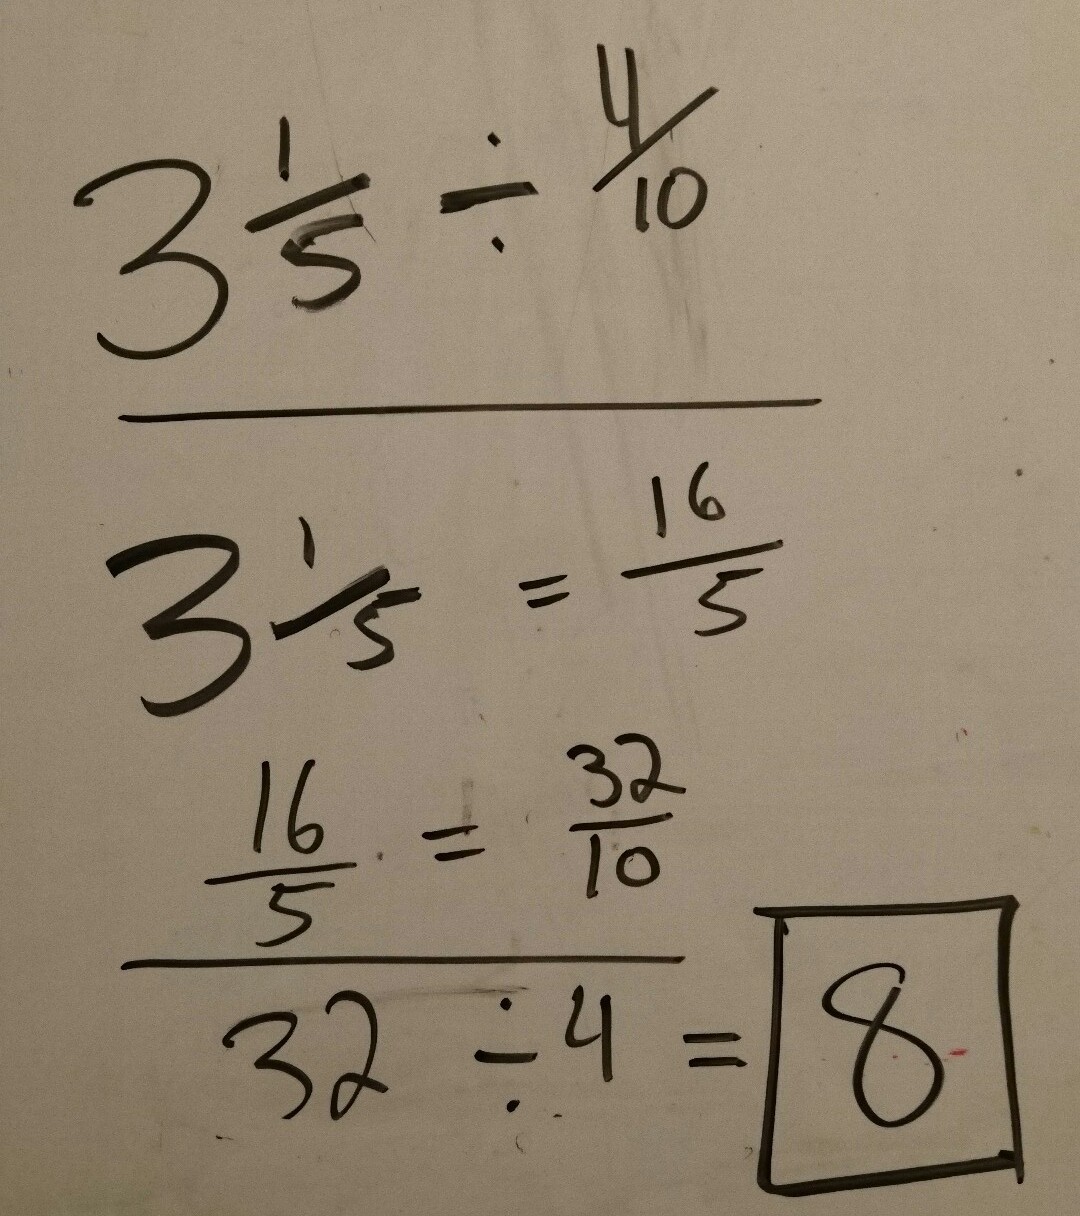 3 1/5 ÷ 4/10
3 1/5 = 16/5
16/5 = 32/10
32 ÷ 4 = 8